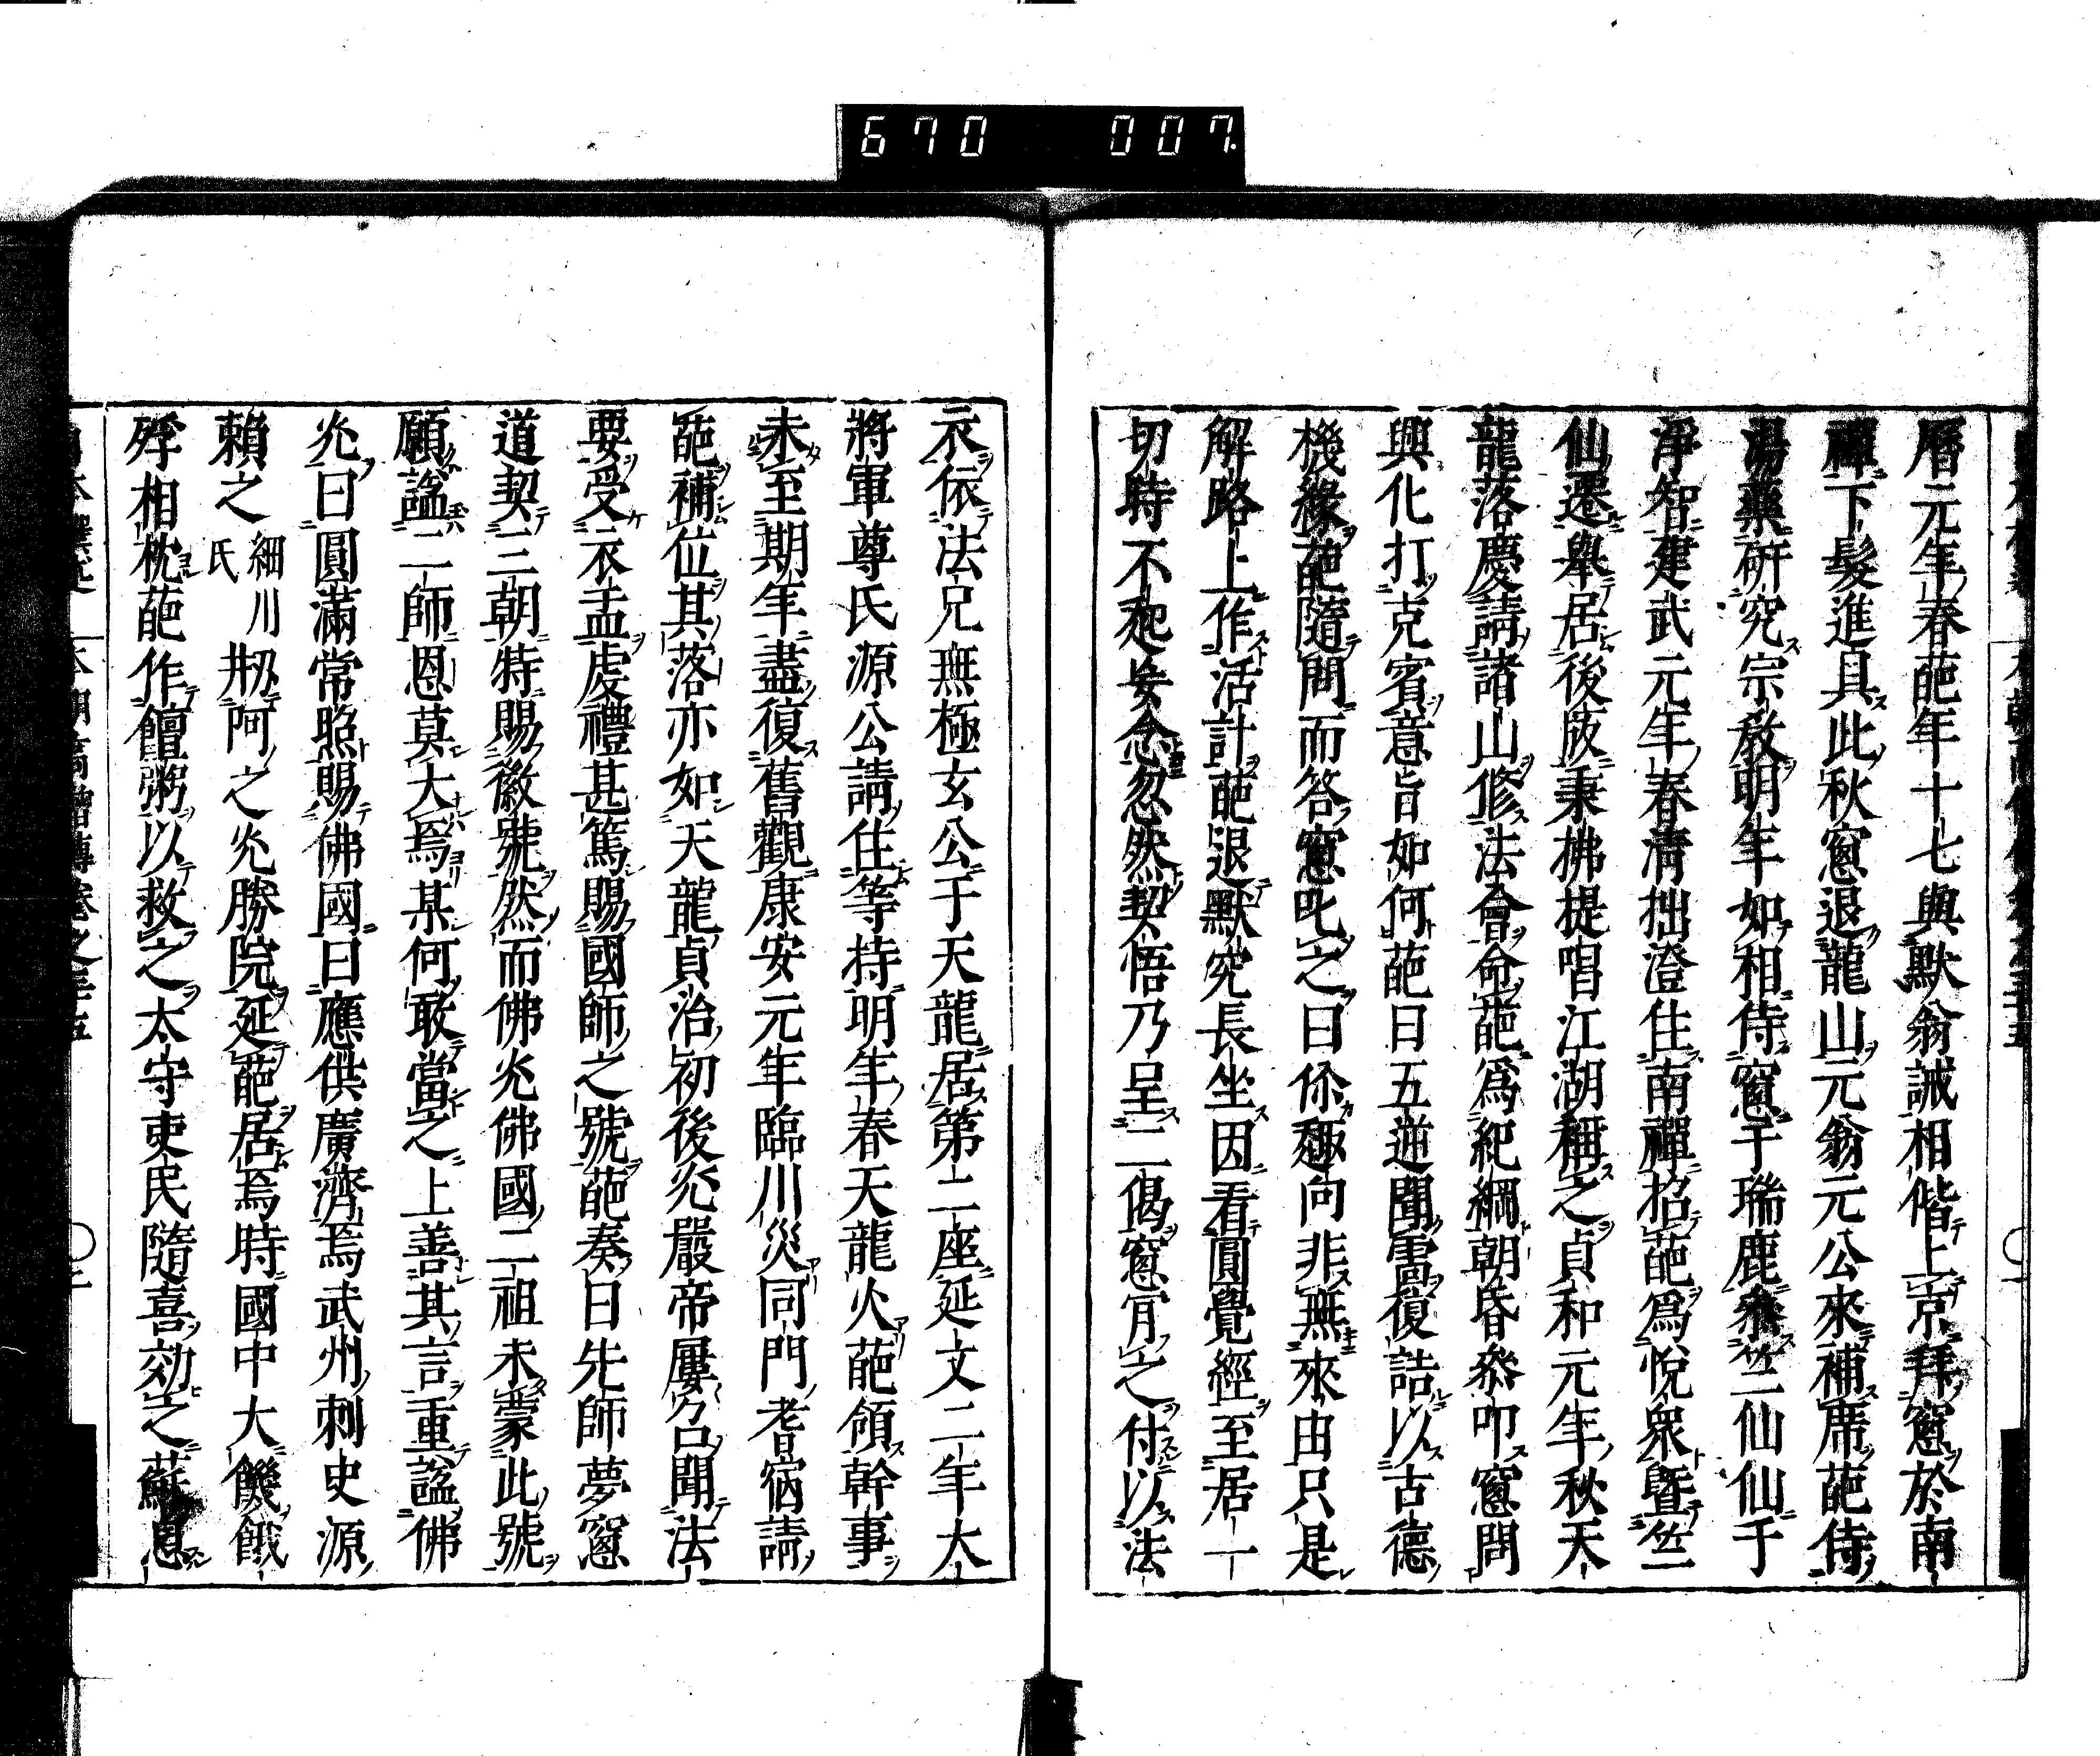 670 007
曆元年春葩年十七與默翁誡相偕上京拜窻於南
禪下髮進具此秋窻退龍山元翁元公來補席葩侍
湯藥研究宗教明年如相侍窻于瑞鹿參竺仙仙于
淨智建武元年春淸拙澄住南禪招葩爲悅衆曁竺
仙遷舉居後版秉拂提唱江湖稱之貞和元年秋天
龍落慶請諸山修法會命葩爲紀綱朝昏叅叩窻問
興化打克賓意旨如何葩曰五逆聞雷復詰以古德
機緣葩隨問而答窻叱之曰你趣向非無來由只是
解路上作活計葩退默究長坐因看圓覺經至居一
切時不起妄念忽然契悟乃呈二偈窻肎之付以法
衣依法兄無極玄公于天龍居第二座延文二年大
將軍尊氏源公請住等持明年春天龍火葩領幹事
未至期年盡復舊觀康安元年臨川災同門耆宿請
葩補位其落亦如天龍貞治初後光嚴帝屢召聞法
要受衣盂虔禮甚篤賜國師之號葩奏曰先師夢窻
道契三朝特賜徽號然而佛光佛國二祖未蒙此號
願謚二師恩莫大焉某何敢當之上善其言重謚佛
光曰圓滿常照賜佛國曰應供廣濟焉武州刺史源
賴之細川氏剏阿之光勝院延葩居焉時國中大饑餓
殍相枕葩作饘粥以救之太守吏民隨喜効之蘇息